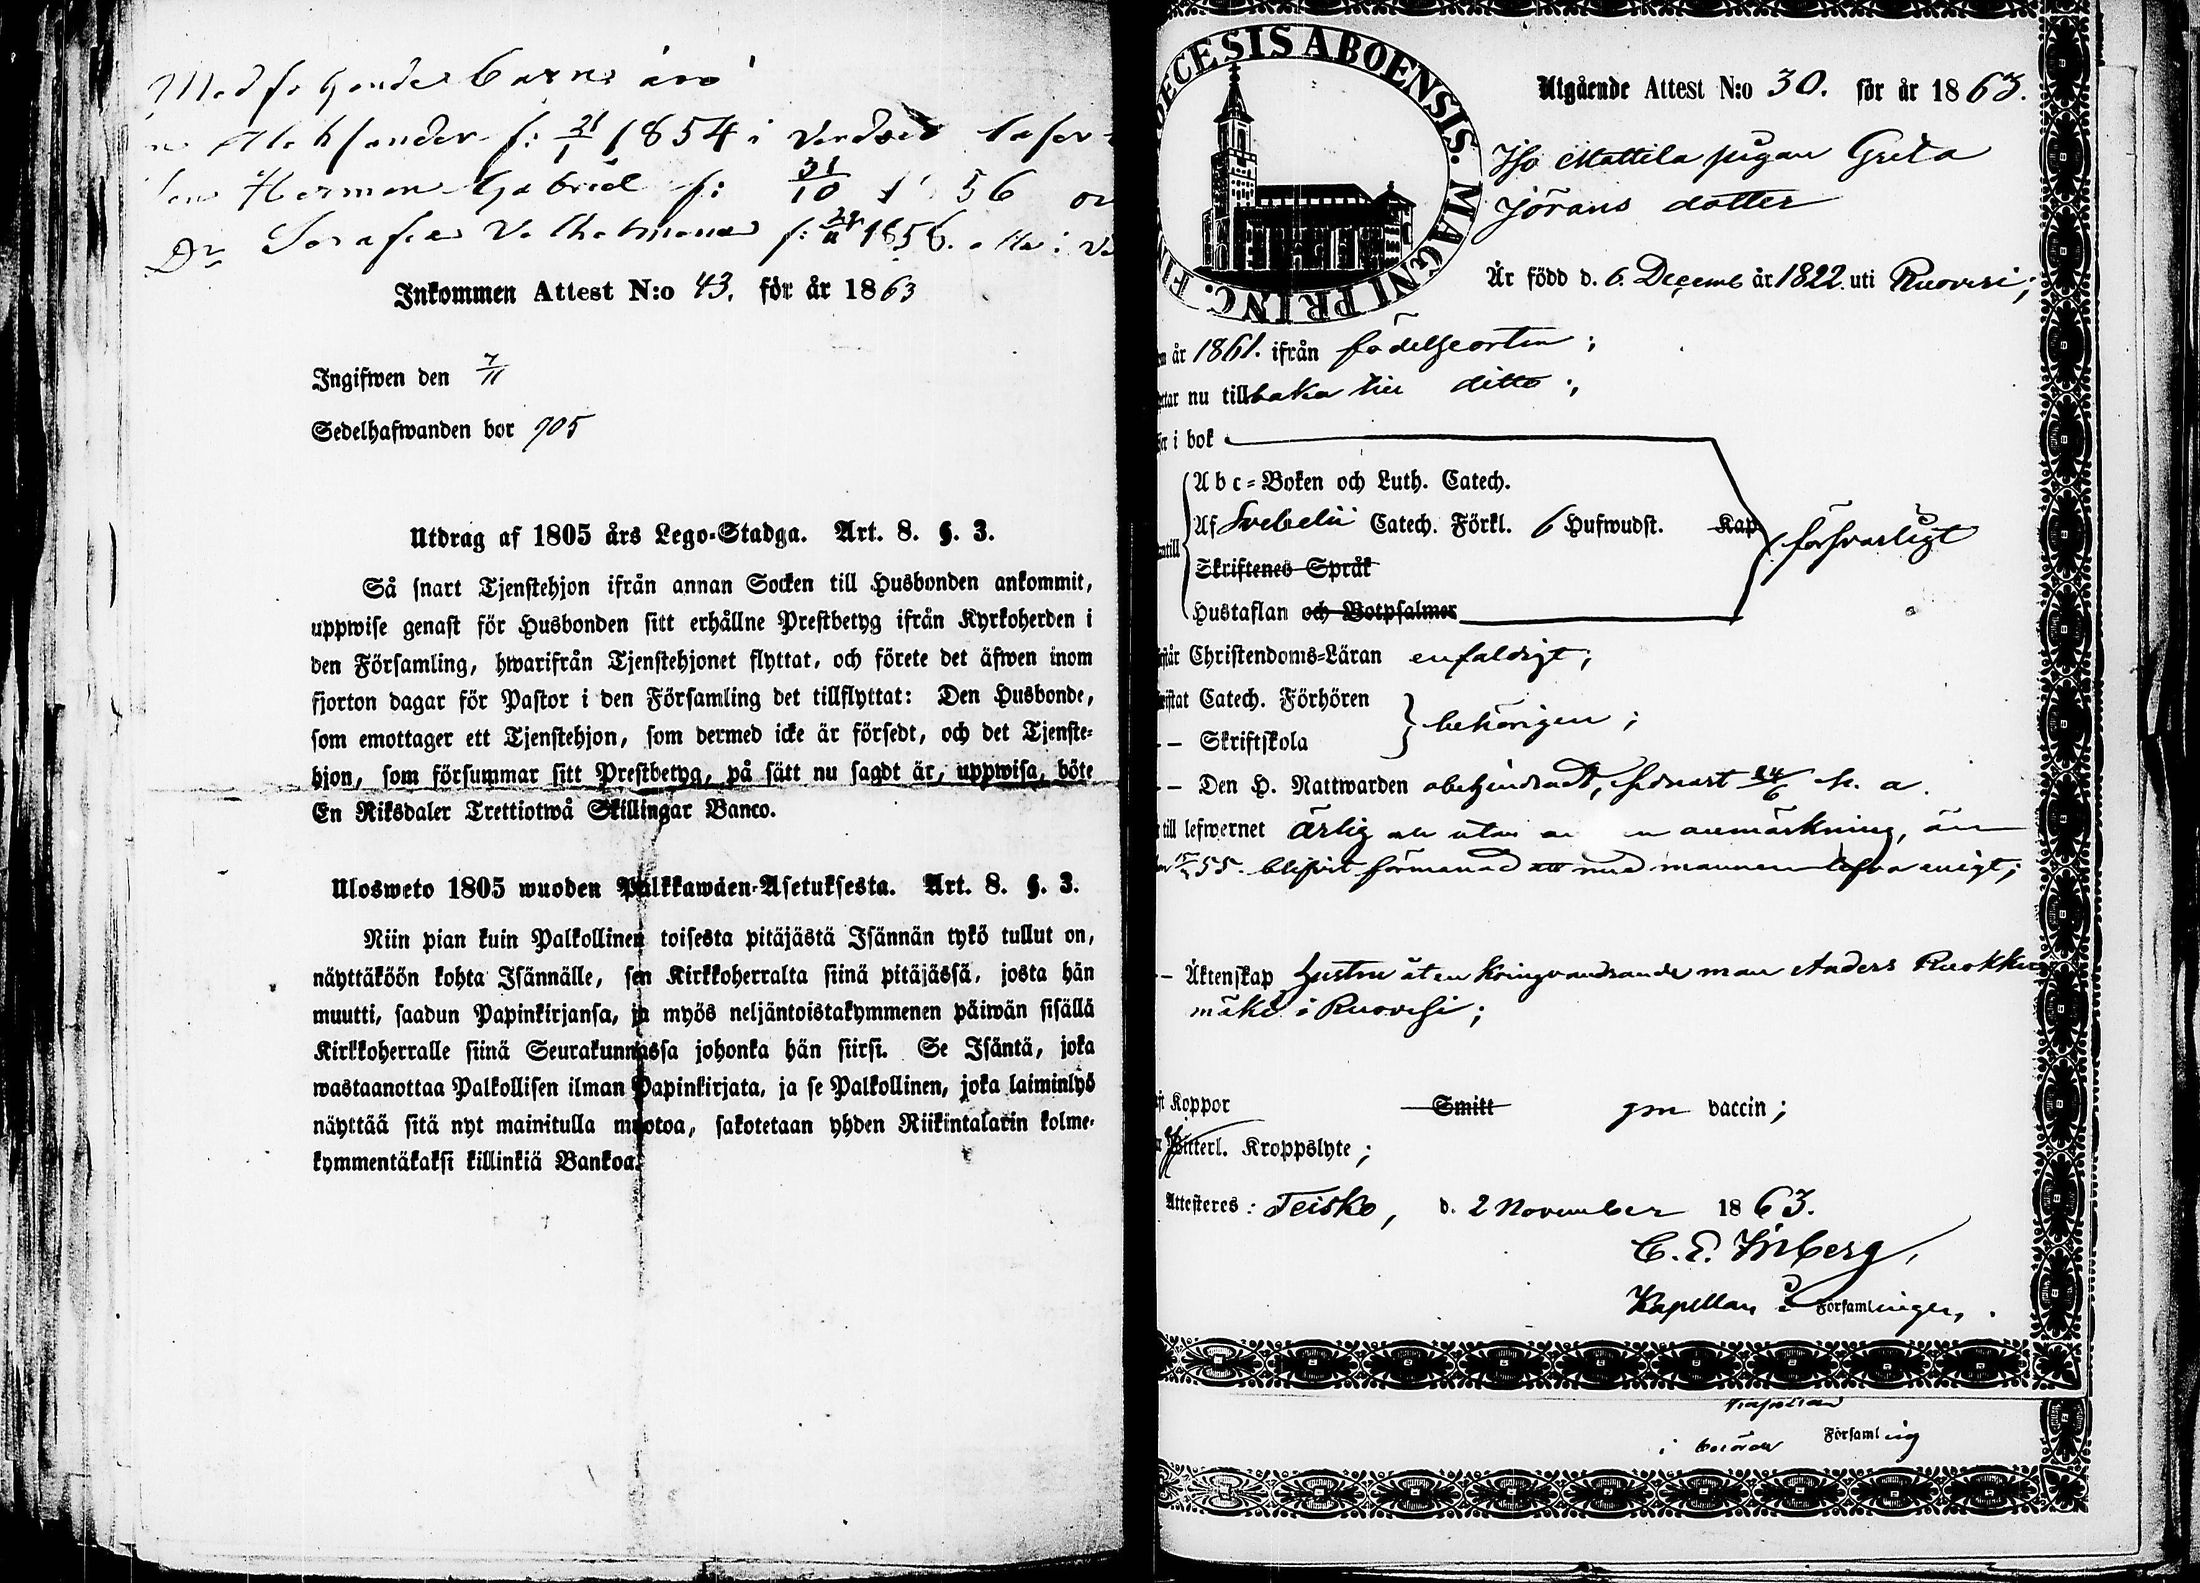 Medföljande barns äro
Alexander f: 21/1 1854 i
Herman Gabriel f: 31/10 56
Dr Serafia Vilhelmina f: 1856.
Inkommen Attest N:o 43. för år 1863
Ingifwen den 7/11
Sedelhafwanden bor 705
Utdrag af 1805 års Lego-Stadga. Art. 8. §. 3.
Så snart Tjenstehjon ifrån annan Socken till Husbonden ankommit,
uppwise genast för Husbonden sitt erhållne Prestbetyg ifrån Kyrkoherden i
den Församling, hwarifrån Tjenstehjonet flyttat, och förete det äfwen inom
fjorton dagar för Pastor i den Församling det tillflyttat: Den Husbonde,
som emottager ett Tjenstehjon, som dermed icke är försedt, och det Tjenste-
hjon, som försummar sitt Prestbetyg, på sätt nu sagdt är, uppwisa, böte
En Riksdaler Trettiotwå Skillingar Banco.
Ulosweto 1805 wuoden Palkkawäen-Asetuksesta. Art. 8. §. 3.
Niin pian kuin Palkollinen toisesta pitäjästä Isännän tykö tullut on,
näyttäköön kohta Isännälle, sen Kirkkoherralta siinä pitäjässä, josta hän
muutti, saadun Papinkirjansa, ja myös neljäntoistakymmenen päiwän sisällä
Kirkkoherralle siinä Seurakunnassa johonka hän siirsi. Se Isäntä, joka
wastaanottaa Palkollisen ilman Papinkirjata, ja se Palkollinen, joka laiminlyö
näyttää sitä nyt mainitulla muotoa, sakotetaan yhden Riikintalarin kolme-
kymmentäkaksi killinkiä Bankoa.
ECESIS ABOENSIS. MAGNI PRINC. FI
Utgående Attest N:o 30. för år 1863.
Iso Mattila pigan Greta
Jörans dotter
Är född d. 6. Decemb år 1822. uti Ruovesi;
år 1861. ifrån födelseorten;
nu tillbaka till ditto;
i bok
Abc-Boken och Luth. Catech.
Af Svebelii Catech. Förkl. 6 Hufwudst. Kap
försvarligt
Skriftenes Språk
Hustaflan och Botpsalmer
Christendoms-Läran enfaldigt;
Catech. Förhören
behörigen;
— Skriftskola
— Den H. Nattwarden obehindradt, sednast 24/6 h. a.
till lefwernet ärlig utan anmärkning, än
55. blifvit förmanad att med mannen lefva enigt;
— Äktenskap hustru åt en kringvandrande man Anders Ruokku
mäki i Ruovesi;
Koppor Smitt gm vaccin;
Witterl. Kroppslyte;
Attesteres: Teisko, d. 2 November 1863.
Kapellan i Församlingen.
Kapellan
i Församling